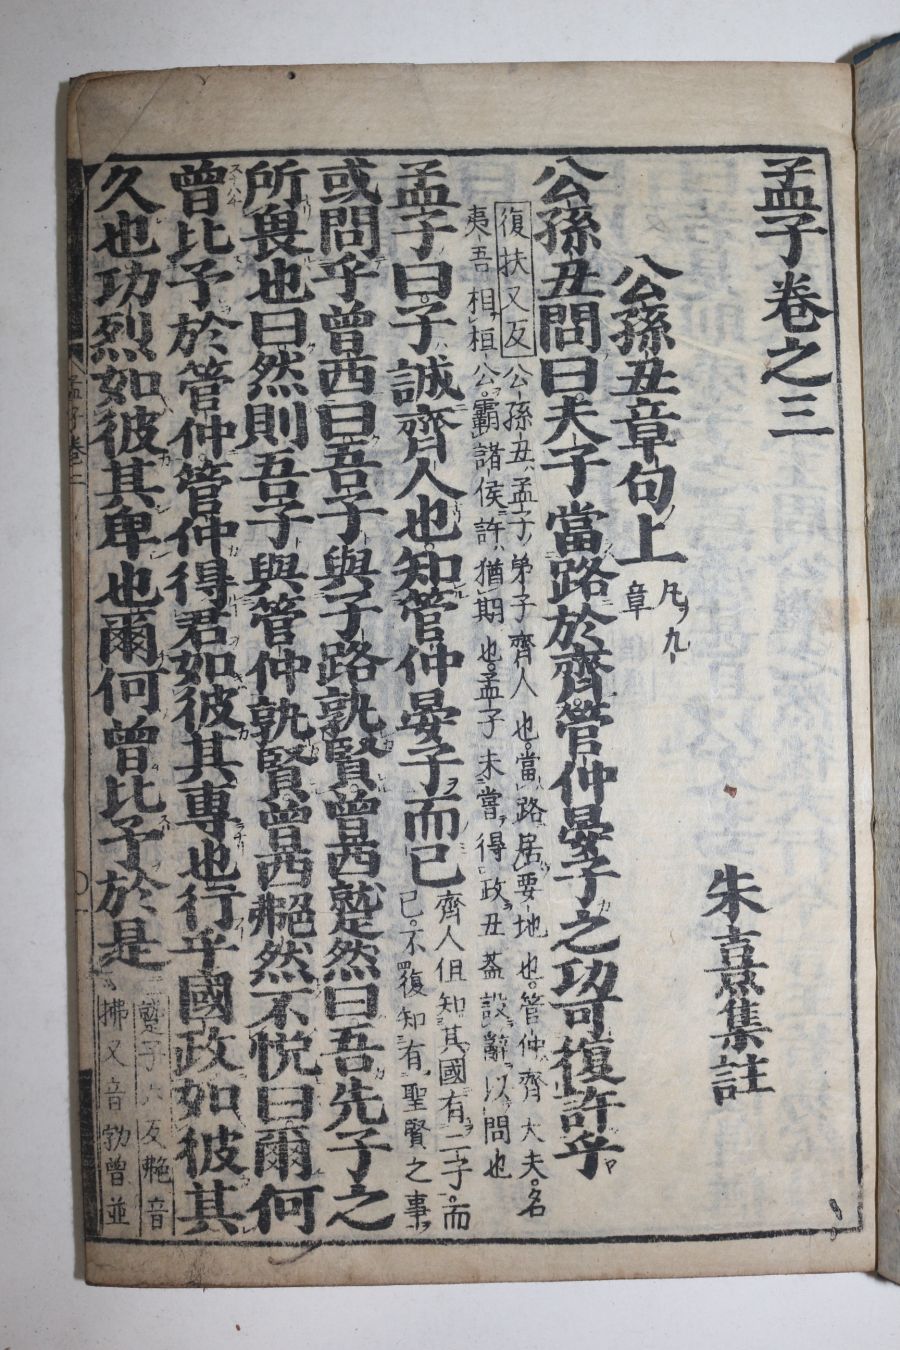 孟子卷之三
朱熹集註
公孫丑章句上
凡九
章
公孫丑問曰夫子當路於齊管仲晏子之功可復許乎
復扶又反公孫丑孟子弟子齊人也當路居要地也管仲齊大夫名
夷吾相桓公霸諸侯許猶期也孟子未嘗得政丑蓋設辭以問也
孟子曰子誠齊人也知管仲晏子而已
齊人但知其國有二子而
已不復知有聖賢之事
或問乎曾西曰吾子與子路孰賢曾西蹵然曰吾先子之
所畏也曰然則吾子與管仲孰賢曾西艴然不悅曰爾何
曾比予於管仲管仲得君如彼其專也行乎國政如彼其
久也功烈如彼其卑也爾何曾比予於是
蹵子六反艴音
拂又音勃曾並